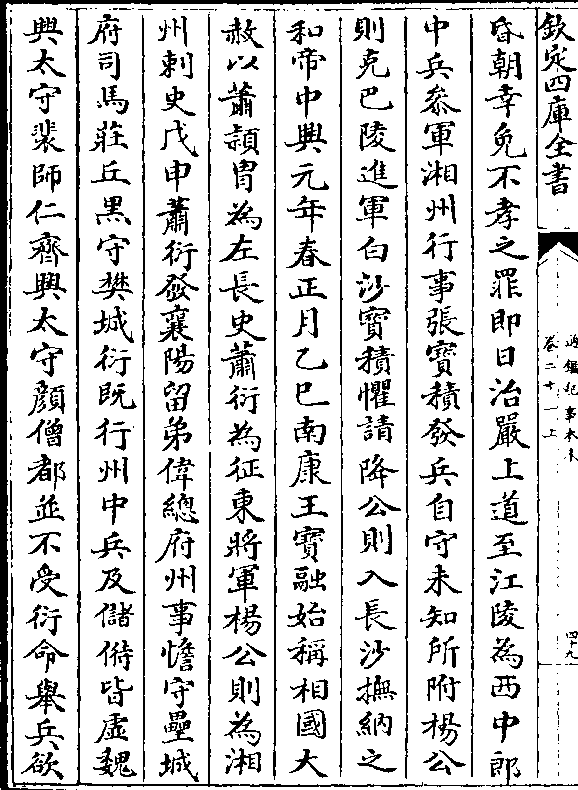 欽定四庫全書
通鑑紀事本末
卷二十一上
四十九
昏朝幸免不孝之罪即日治嚴上道至江陵為西中郎
中兵叅軍湘州行事張寶積發兵自守未知所附楊公
則克巴陵進軍白沙寶積懼請降公則入長沙撫納之
和帝中興元年春正月乙巳南康王寶融始稱相國大
赦以蕭頴胄為左長史蕭衍為征東將軍楊公則為湘
州刺史戊申蕭衍發襄陽留弟偉總府州事憺守壘城
府司馬莊丘黑守樊城衍既行州中兵及儲偫皆虛魏
興太守裴師仁齊興太守顔僧都並不受衍命舉兵欲